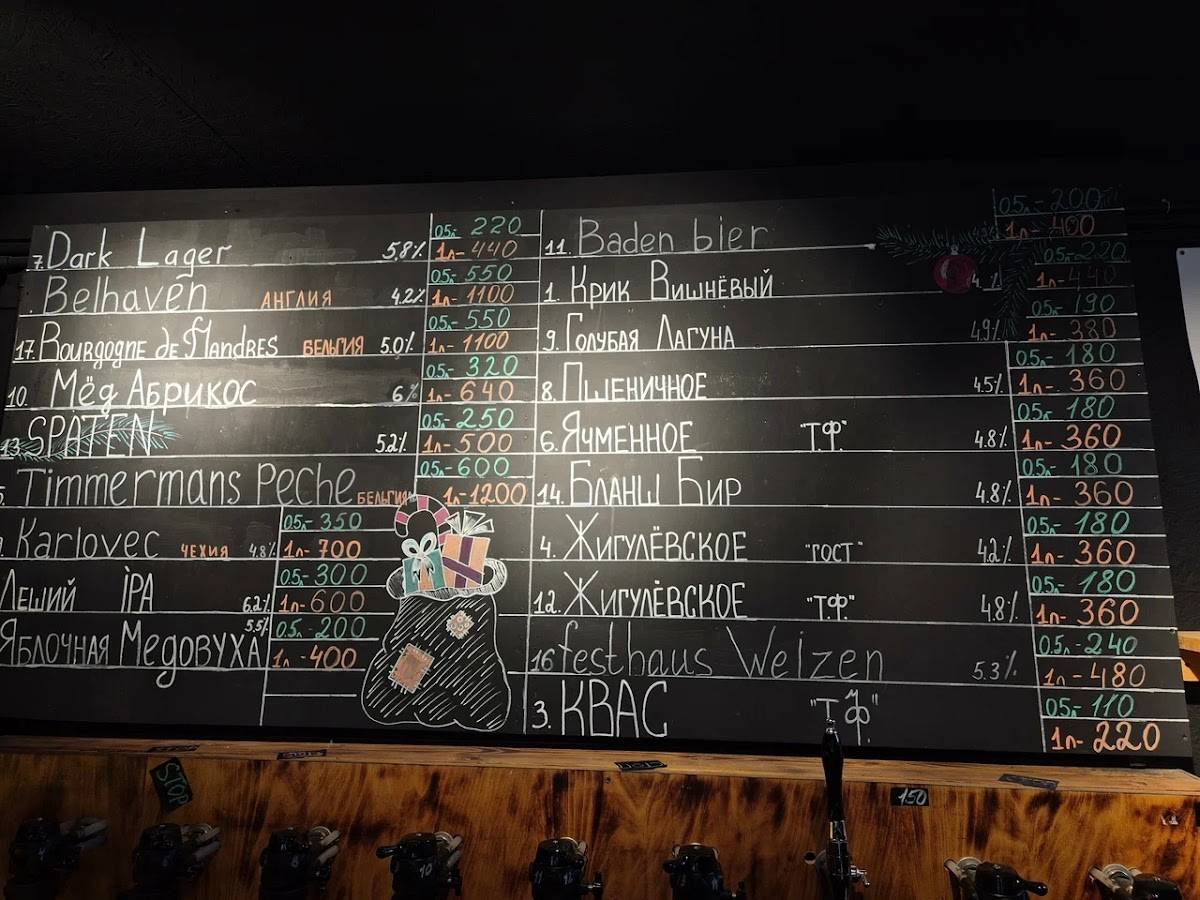 7. Dark Lager 5,8% 0.5л- 220
1л- 440
Belhaven АНГЛИЯ 4.2% 0.5л- 550
1л- 1100
17. Bourgogne de Flandres БЕЛЬГИЯ 5.0% 0.5л- 550
1л- 1100
10. Мёд Абрикос 6% 0.5л- 320
1л- 640
13. SPATEN 5.2% 0.5л- 250
1л- 500
Timmermans Peche БЕЛЬГИЯ 0.5л- 600
1л- 1200
Karlovec ЧЕХИЯ 4.8% 0.5л- 350
1л- 700
Леший IPA 6.2% 0.5л- 300
1л- 600
Яблочная Медовуха 5.5% 0.5л- 200
1л- 400
11. Baden bier 0.5л- 200
1л- 400
1. Крик Вишнёвый 0.5л- 220
1л- 440
9. Голубая Лагуна 4.9% 0.5л- 190
1л- 380
8. Пшеничное 4.5% 0.5л- 180
1л- 360
6. Ячменное "Т.Ф." 4.8% 0.5л- 180
1л- 360
14. Бланш Бир 4.8% 0.5л- 180
1л- 360
4. Жигулёвское "ГОСТ" 4.2% 0.5л- 180
1л- 360
12. Жигулёвское "Т.Ф." 4.8% 0.5л- 180
1л- 360
16 festhaus Weizen 5.3% 0.5л- 240
1л- 480
3. КВАС "Т.Ф." 0.5л- 110
1л- 220
STOP
150
8
10
11